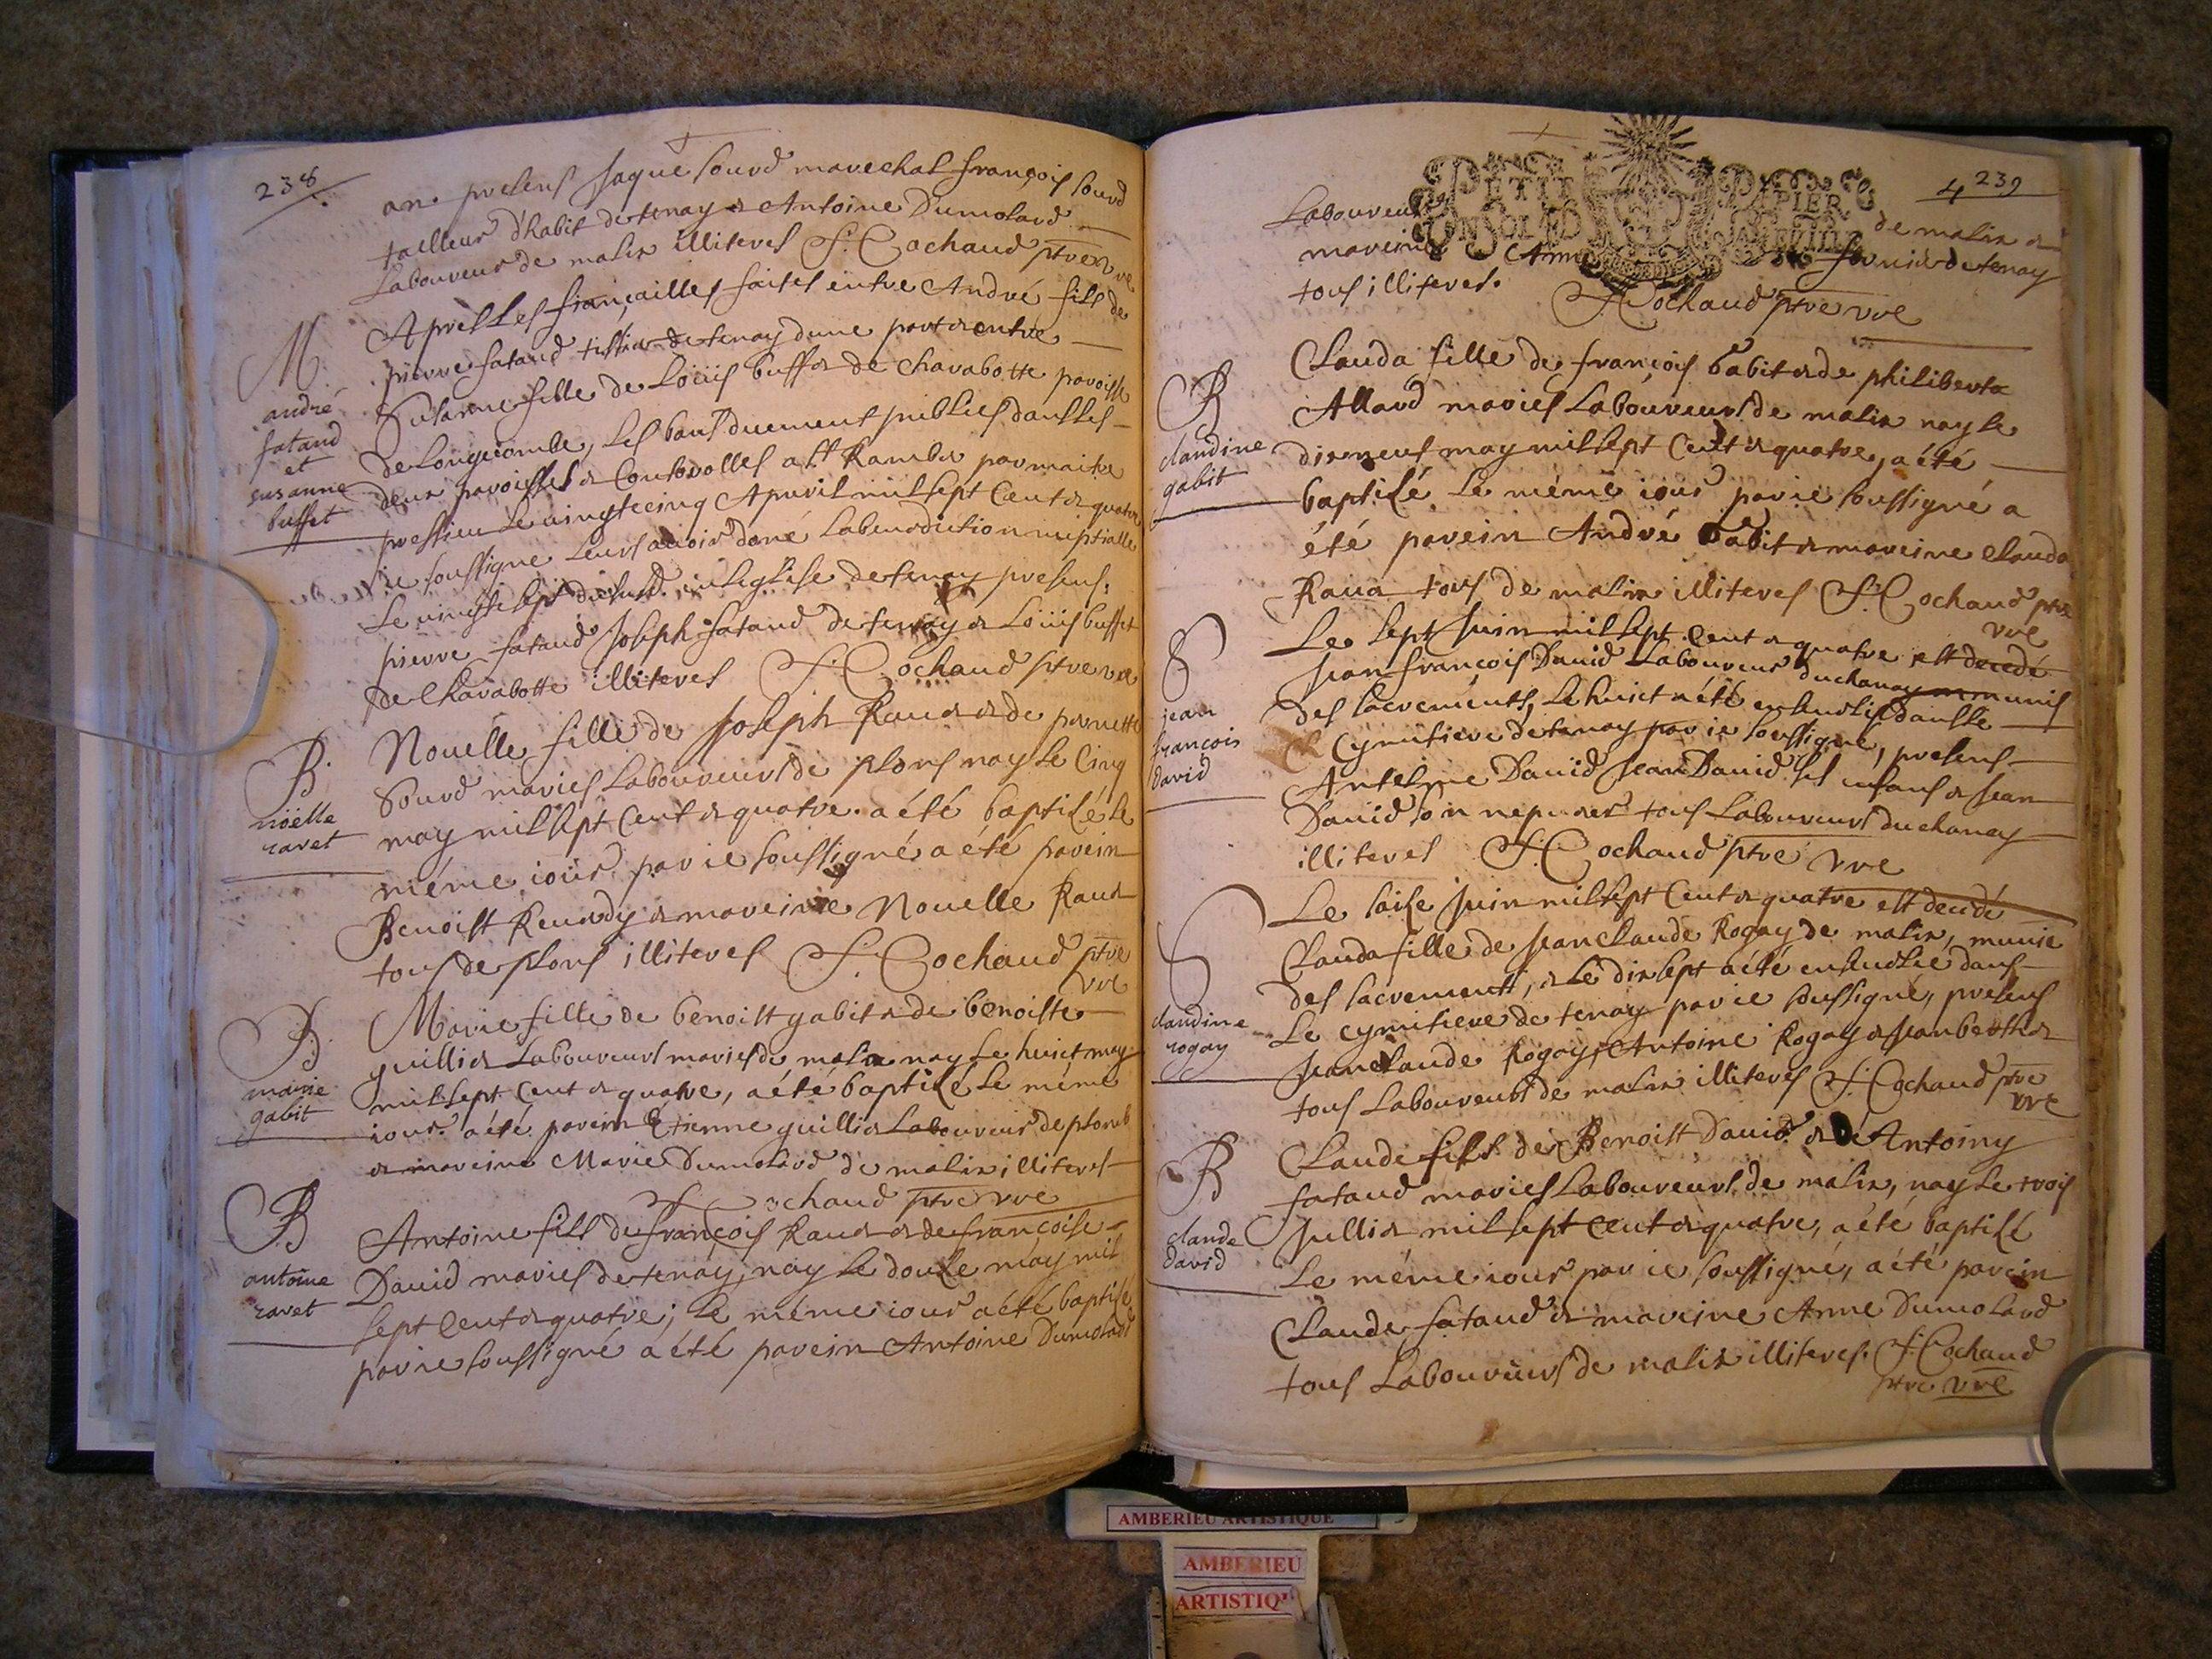 238
an presens Jaque Sourd marechal françois Sourd
tailleur d'habit de tenay & Antoine Dumolard
Laboureur de malix illiteres F. Cochaud ptre vre
M.
andré
fataud
et
susanne
buffet
Apres Les fiançailles faites entre André fils de
pierre fataud tissier de tenay dune part & entre
Susanne fille de Loüis buffet de Charabotte paroisse
de Longecombe, Les bans duement publies dans les
deux paroisses & Controolles a St Rambr par maitre
pressieu Le vingtecinq Apuril mil sept Cent & quatre
ie soussigne Leurs auoir doné La benediction nuptialle
Le vingte sept dudit en Leglise de tenay presens,
pierre fataud Joseph fataud de tenay & Loüis buffet
de Charabotte illiteres F. Cochaud ptre vre
B.
nöella
ravet
Nouelle fille de Joseph Rauet & de pernette
Sourd maries Laboureurs de plons nay Le Cinq
may mil sept Cent & quatre a été baptizé Le
méme iour par ie soussigné a été parein
Benoist Reuerdy & mareine Nouelle Rauet
tous de plons illiteres F. Cochaud ptre
vre
B
marie
gabit
Marie fille de benoist gabit & de benoiste
guillier Laboureurs maries de malix nay Le huict may
mil sept Cent & quatre, a été baptizé Le méme
iour a été parein Etienne guillier Laboureur de plomb
& mareine Marie Dumolard de malix illiteres
F. Cochaud ptre vre
B
antoine
ravet
Antoine fils de françois Rauet & de françoise
Dauid maries de tenay, nay Le douze may mil
sept Cent & quatre; Le méme iour a été baptise
par ie soussigné a été parein Antoine Dumolard
4 239
PETIT PAPIER
Laboureur de malix &
mareine Anne fornier de tenay
tous illiteres.
F. Cochaud ptre vre
B
claudine
gabit
Clauda fille de françois Gabit & de philiberta
Allard maries Laboureurs de malix nay Le
dixneuf may mil sept Cent & quatre, a été
baptizé Le méme iour par ie soussigné a
été parein André Gabit & mareine Clauda
Raua tous de malix illiteres F. Cochaud ptre
vre
S
jean
françois
david
Le sept Juin mil sept Cent & quatre est decedé
Jean françois Dauid Laboureur du chanay munis
des sacrements, Le huict a été enseuelis dans Le
Cymitiere de tenay par ie soussigné, presens
Antelme Dauid Jean Dauid ses enfans & Jean
Dauid son nepueu tous Laboureurs du chanay
illiteres F. Cochaud ptre vre
S
claudine
rogay
Le saize Juin mil sept Cent & quatre est decedé
Clauda fille de Jean Claude Rogay de malix, munie
des sacrements, & Le dixsept a été enseuelie dans
Le cymitiere de tenay par ie soussigné, presens
Jean Claude Rogay, Antoine Rogay & Jean berthet
tous Laboureurs de malix illiteres F. Cochaud ptre
vre
B
claude
david
Claude fils de Benoist Dauid & de Antoiny
fataud maries Laboureurs de malix, nay Le trois
Jullier mil sept Cent & quatre, a été baptizé
Le méme iour par ie soussigné, a été parein
Claude fataud & mareine Anne Dumolard
tous Laboureurs de malix illiteres. F. Cochaud
ptre vre
AMBERIEU ARTISTIQUE
AMBERIEU
ARTISTIQU